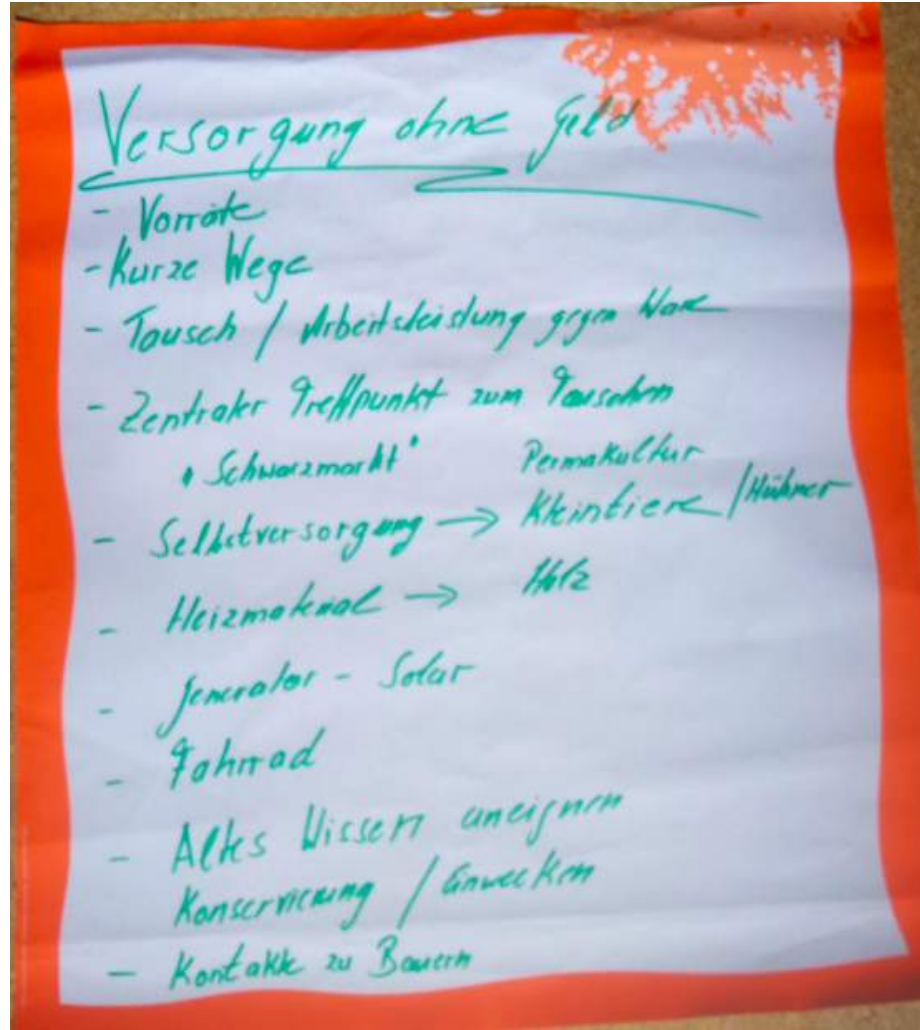 Versorgung ohne Geld
- Vorräte
- Kurze Wege
- Tausch / Arbeitsleistung gegen Ware
- Zentraler Treffpunkt zum Tauschen
"Schwarzmarkt" Permakultur
- Selbstversorgung → Kleintiere / Hühner
- Heizmaterial → Holz
- Generator - Solar
- Fahrrad
- Altes Wissen aneignen
Konservierung / Einwecken
- Kontakte zu Bauern